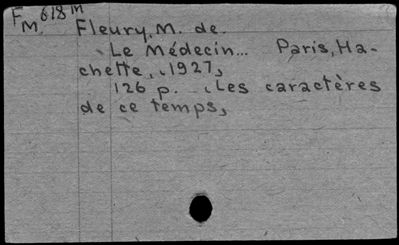 F 618 M
M.
Fleury, M. de.
Le Médecin... Paris, Ha-
chette, 1927,
126 p. Les caractères
de ce temps,